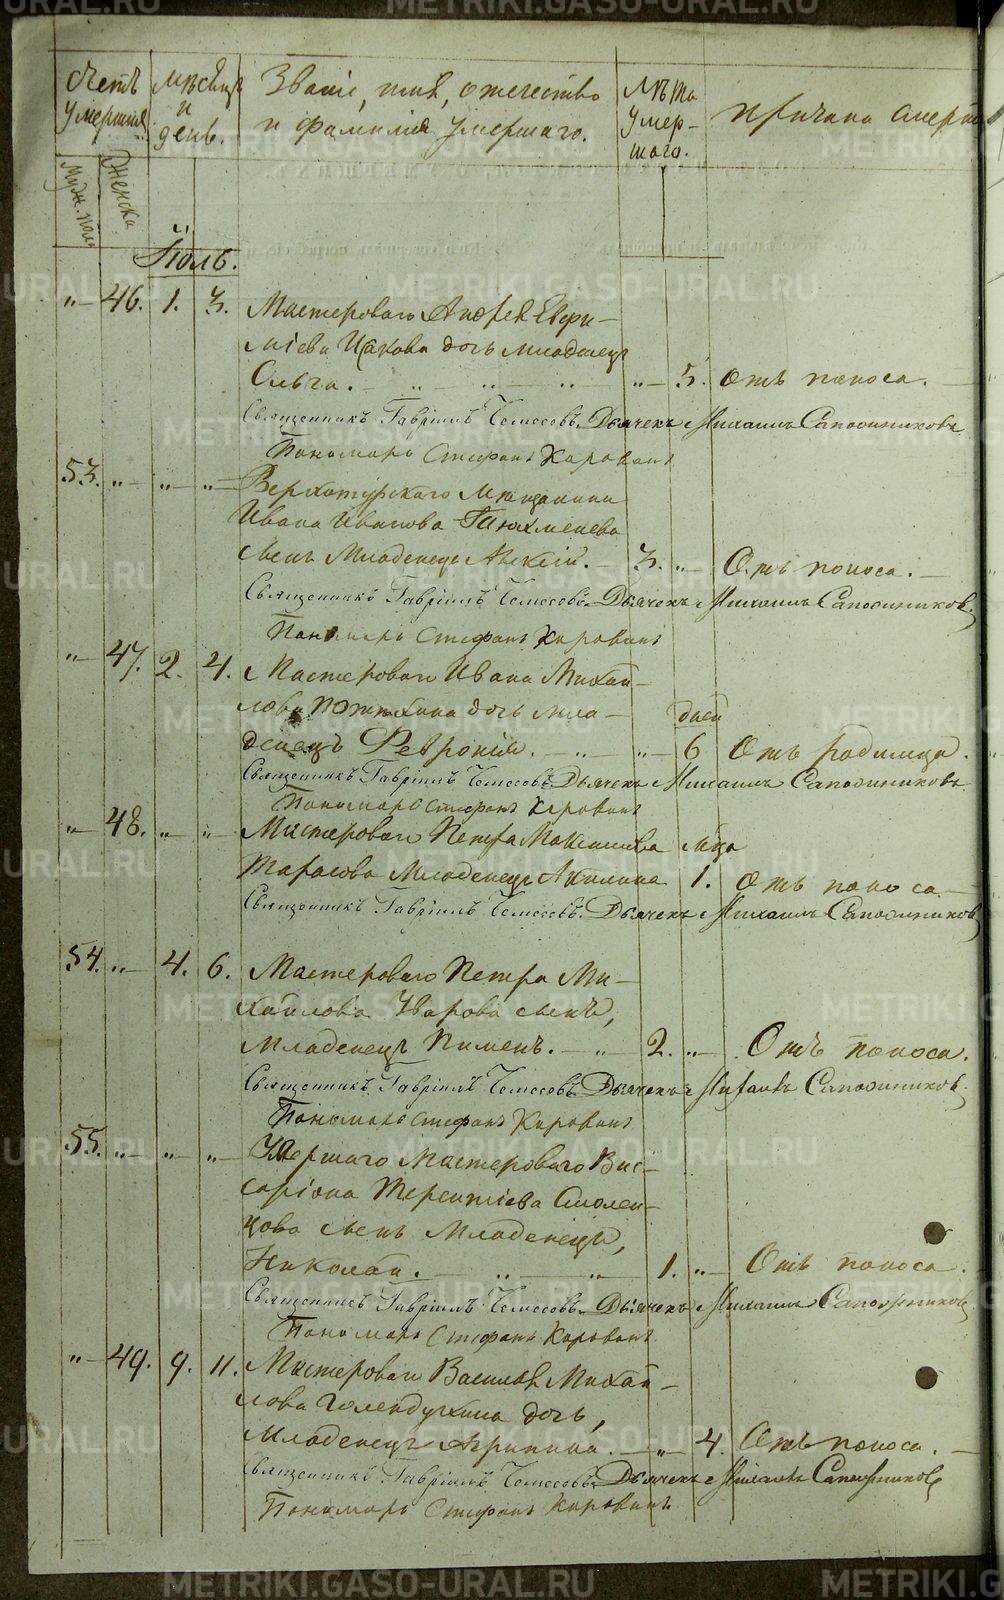 Счетъ умершихъ
Муж. пола
Женска
Мѣсяцъ и день.
Званіе, имя, отчество
и фамилія умершаго.
Лѣта умер-
шаго.
Причина смерти
Іюль.
"— 46. 1. 3. Мастероваго Андрея Евфи-
міева дочь младенецъ
Ольга. — " — " — " "— 5. Отъ поноса.
Священникъ Гавріилъ Дьячекъ Михаилъ Сапожниковъ
Пономарь Стефанъ
53. " — " — " — Верхотурскаго мѣщанина
Ивана Иванова Тюхменева
сынъ Младенецъ Алексій. — 3. " — Отъ поноса. —
Священникъ Гавріилъ Дьячекъ Михаилъ Сапожниковъ
Пономарь Стефанъ
"— 47. 2. 4. Мастероваго Ивана Михай-
лова дочь мла- дней
денецъ Февронія. — " — " — 6 Отъ родимца.
Священникъ Гавріилъ Дьячекъ Михаилъ Сапожниковъ
Пономарь Стефанъ
"— 48. " — " — Мастероваго Петра Максимова мѣца
Тарасова Младенецъ Акилина 1. Отъ поноса —
Священникъ Гавріилъ Дьячекъ Михаилъ Сапожниковъ
54. " — 4. 6. Мастероваго Петра Ми-
хайлова Уварова сынъ,
Младенецъ Пименъ. — " — 2. " — Отъ поноса.
Священникъ Гавріилъ Дьячекъ Михаилъ Сапожниковъ
Пономарь Стефанъ
55. " — " — " — Умершаго Мастероваго Вис-
саріона Терентіева Смолен-
цова сынъ Младенецъ,
Николай. — " — " — 1. " — Отъ поноса.
Священникъ Гавріилъ Дьячекъ Михаилъ Сапожниковъ
Пономарь Стефанъ
"— 49. 9. 11. Мастероваго Василья Михай-
лова Голендухина дочь,
Младенецъ Агрипина. — " — 4. Отъ поноса. —
Священникъ Гавріилъ Дьячекъ Михаилъ Сапожниковъ
Пономарь Стефанъ
METRIKI.GASO-URAL.RU